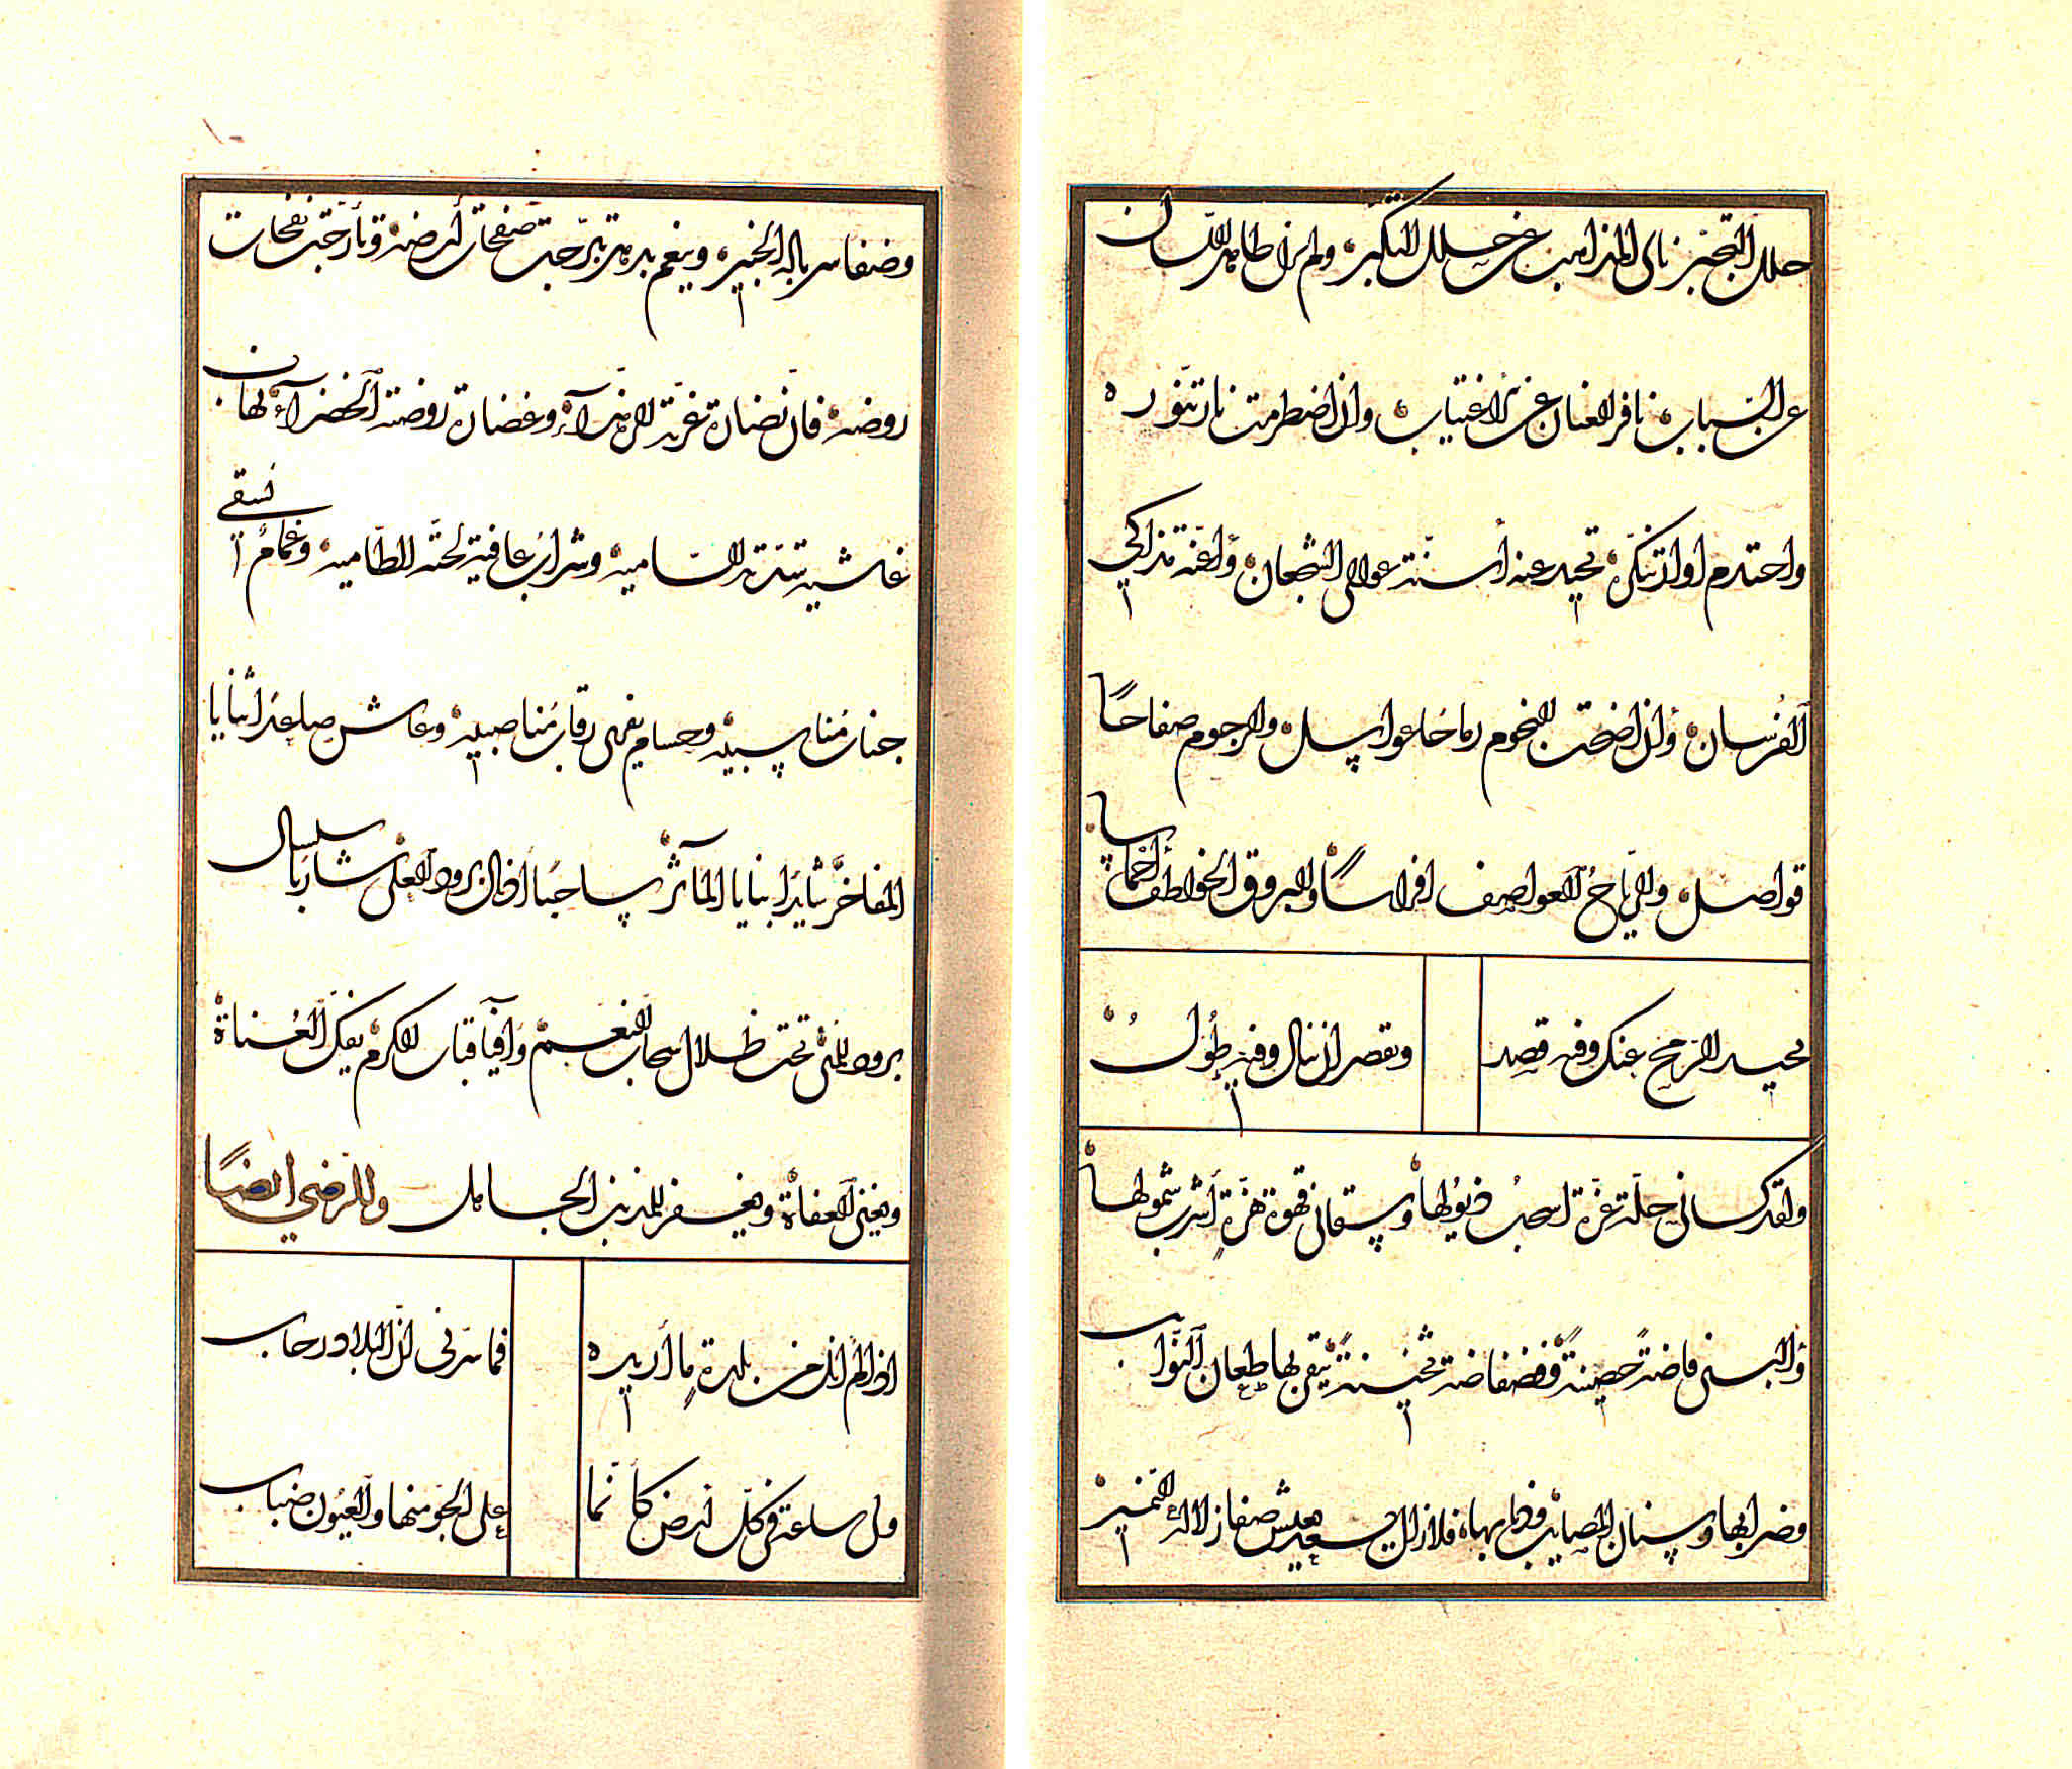 حلل التجبّر نائى المذاهب عن حلل التكبّر ولم ازل طاهر اللسان
عن السباب نافر العنان عن الاغتياب وان اضطرمت نار تنوّره
واحتدم اوار تنكّره تحيد عنه أسنّة عوالى الشجعان وأعنّة مذاكي
الفرسان وان اضحت النجوم رماحًا عواسل والرجوم صفاحًا
قواصل والرياحُ العواصف افراسًا والبروق الخواطف
يحيد الرمح عنك وفيه قصد
وتقصر ان تنال وفيه طُولُ
ولقد كسانى حلّة عزّة اسحبُ ذيولها وسقانى قهوة هزّةٍ أشرب شمولها
وألبسنى فاضة حصينةً وفضفاضة ثخينةً يتقى بها طعان النوائب
وضرابها وسنان المصايب فلا زال عيش صفا زلاله النمير
وضفا سرباله الحبير وينعم بدهر تبرّجت صفحات أرضه وتأرّجت نفحات
روضه فان نضارة غرّته الزهرآء وغضارة روضته الخضرآء بها
غاشية سدّته السامية وشراب عافية لجّته الطامية وغمامٌ نسقي
جناب مُناسبيه وحسام يفرى رقاب مُناصبيه وعاش صاعدا ثنايا
المفاخر شايدا بنايا المآثر ساحبًا اذيال برود العلى شاربا سلسال
برود المنى تحت ظلال سحاب النعم وافياء قباب الكرم يفكّ العُناة
ويغنى العفاة ويغفر للمذنب الجاهل وللرضي ايضًا
اذا لم انل من بلدة ما أريده
فما سرّنى انّ البلاد رحاب
ولى ساعة فى كلّ ارض كأنّما
على الجوّ منها والعيون ضباب